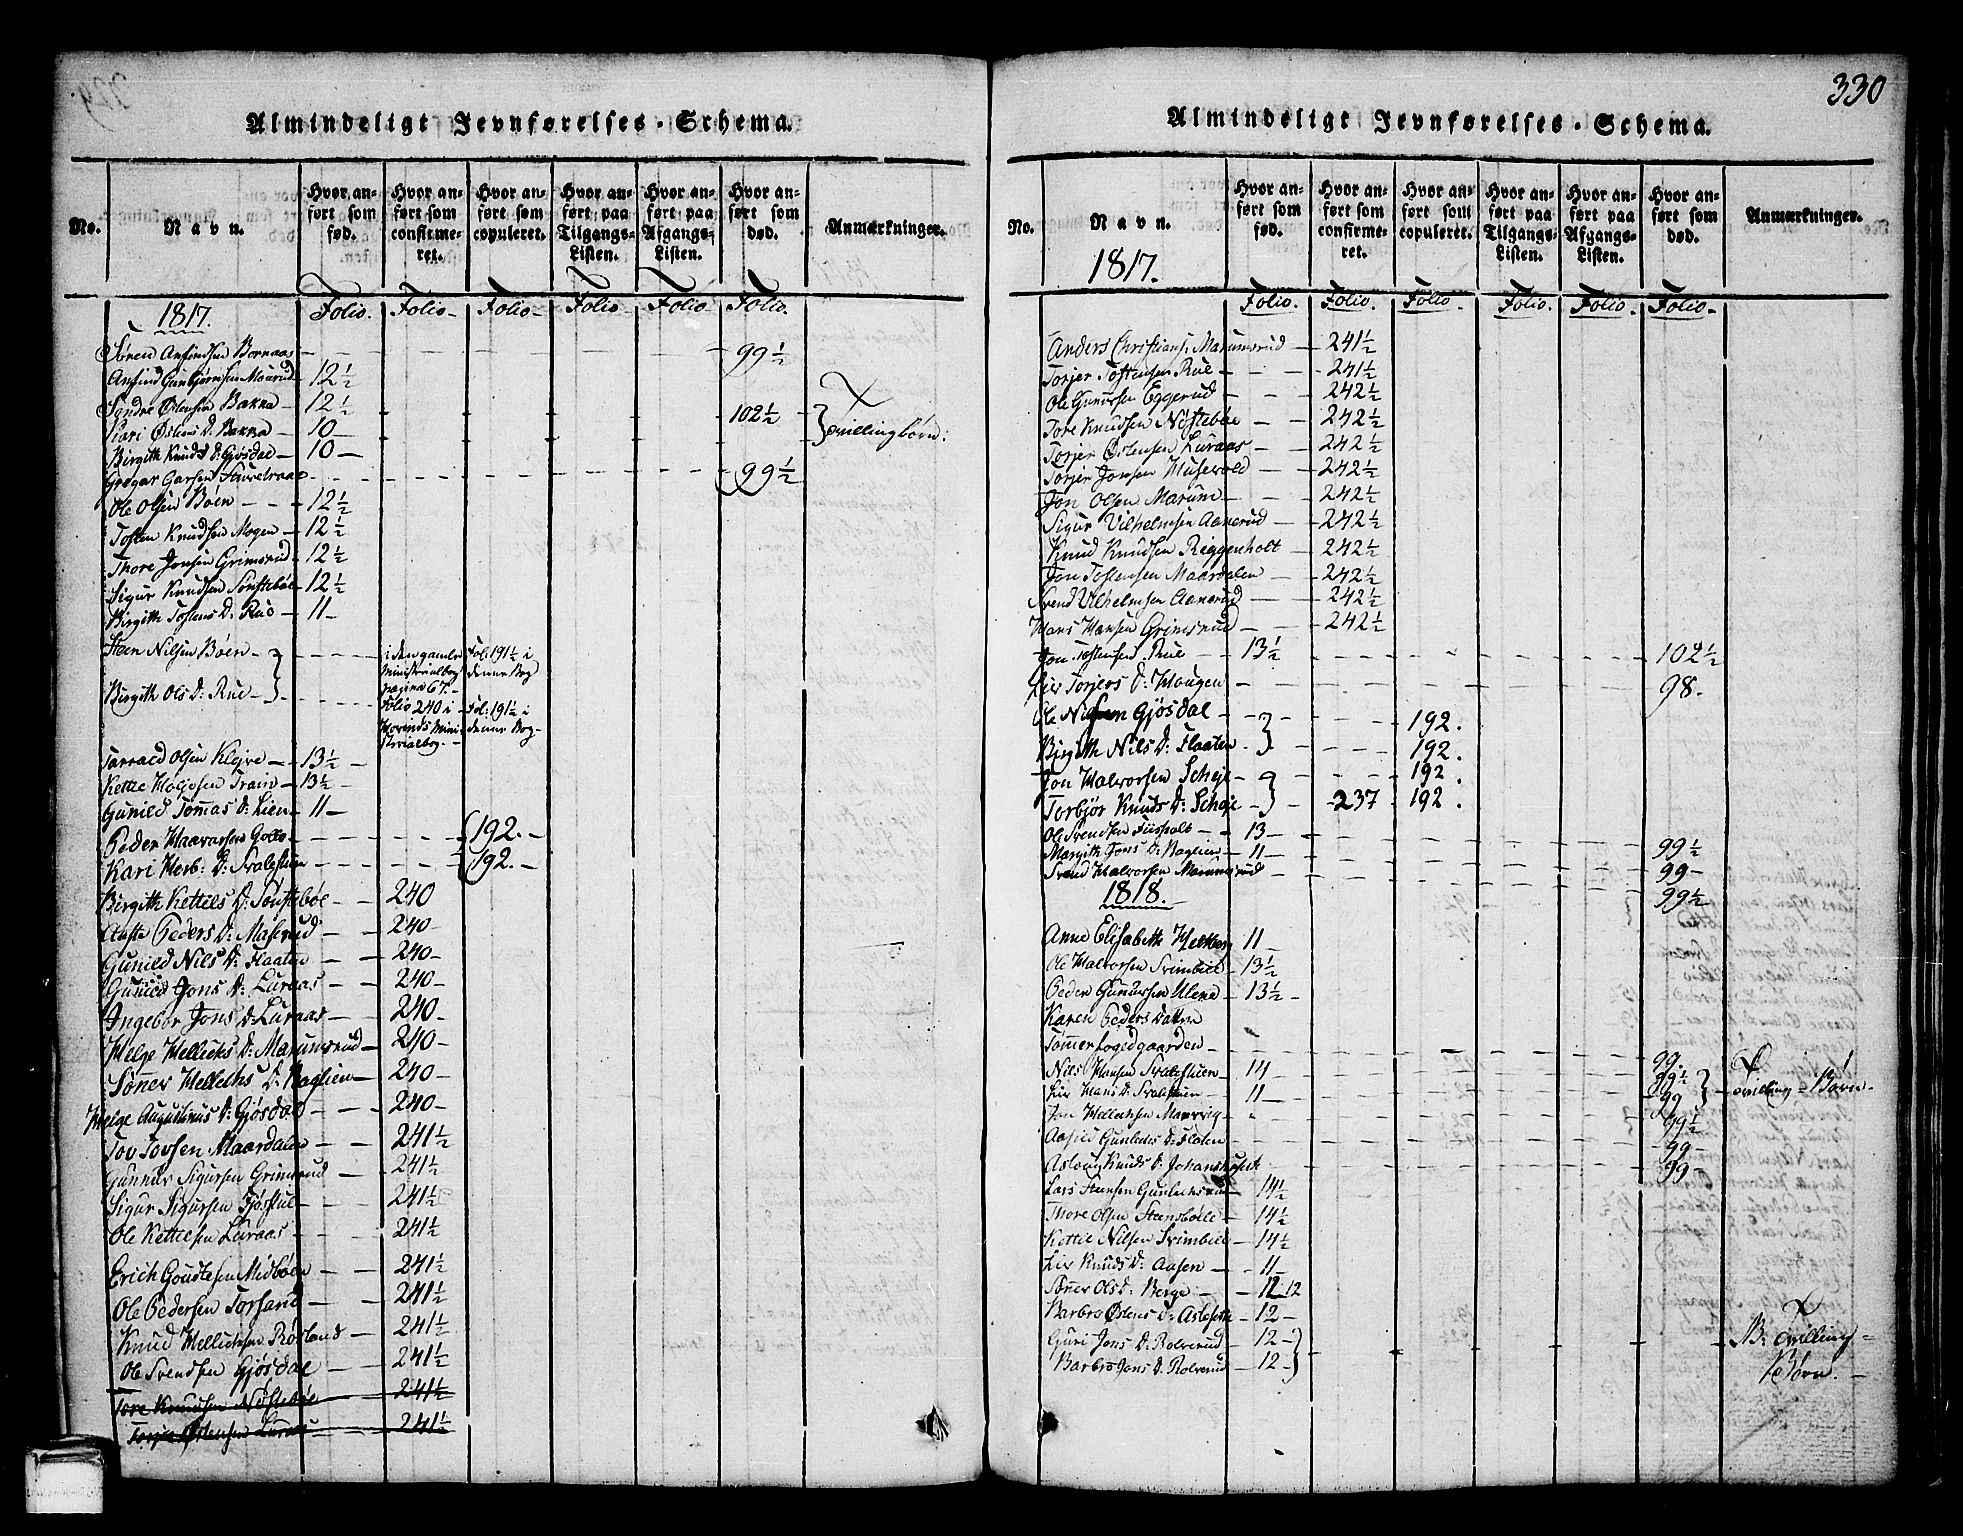 Almindeligt Jevnførelses-Schema.
No.
Navn.
Hvor anført som fød.
Hvor anført som confirmeret.
Hvor anført som copuleret.
Hvor anført paa Tilgangs-Listen.
Hvor anført paa Afgangs-Listen.
Hvor anført som død.
Anmærkninger.
1817. Folio. Folio Folio Folio Folio Folio.
Søren Anfindsen Bornaas 99 1/2
Anfind Gunbjørnsen Mourud 12 1/2
Sondre Østensen Bakka 12 1/2 102 1/2
Kari Østens D. Bakka 10 Tvillingbørn.
Birgith Knuds D. Gjøsdal 10
Gregar Garsen 99 1/2
Ole Olsen Bøen 12 1/2
Tosten Knudsen Mogen 12 1/2
Thore Jonsen Grimsrud 12 1/2
Sigur Knudsen Sønstebøe 12 1/2
Birgith Tostens D. Rue 11
Steen Nilsen Bøen i den gamle Ministerialbog pagina 67. Fol: 191 1/2 i denne Bog
Birgith Ols D: Rue Folio 240 i Hovinds Ministerialbog Fol: 191 1/2 i denne Bog
Tarrald Olsen Klejve 13 1/2
Kettel Holjesen Traim 13 1/2
Gunild Tomas D: Lien 11
Peder Haavarsen 192.
Kari Herb: D: Svalestuen 192.
Birgith Kettels D: Sønstebøe 240
Aaste Peders D: Maserud 240
Gunild Nils D: Flaaten 240
Gunild Jons D: Luraas 240
Ingebor Jons D: Luraas 240
Helge Hellecks D: Marumsrud 240
Sønev Hellechs D: Baglien 240
Helge Augustinus D: Gjøsdal 240
Tov Tovsen Maardalen 241 1/2
Gunnur Sigursen Grimsrud 241 1/2
Sigur Sigursen Fjøstul 241 1/2
Ole Kettelsen Luraas 241 1/2
Erich Goutesen Midbøen 241 1/2
Ole Pedersen Torsand 241 1/2
Knud Hellechsen Røsland 241 1/2
Ole Svendsen Gjøsdal 241 1/2
Tore Knudsen Nøstebøe 241 1/2
Torjer Østensen Luraas 241 1/2
330
Almindeligt Jevnførelses-Schema.
No.
Navn.
Hvor anført som fød.
Hvor anført som confirmeret.
Hvor anført som copuleret.
Hvor anført paa Tilgangs-Listen.
Hvor anført paa Afgangs-Listen.
Hvor anført som død.
Anmærkninger.
1817.
Folio. Folio. Folio Folio. Folio. Folio
Anders Christians: Marumsrud 241 1/2
Torjer Tostensen Rue 241 1/2
Ole Gunursen Eggerud 242 1/2
Tore Knudsen Nøstebøe 242 1/2
Torjer Østensen Luraas 242 1/2
Torjer Jonsen Husevold 242 1/2
Jon Olsen Marum 242 1/2
Sigur Vilhelmsen Aanerud 242 1/2
Knud Knudsen Riggenholt 242 1/2
Jon Tostensen Maardalen 242 1/2
Svend Vilhelmsen Aanerud 242 1/2
Hans Hansen Grimsrud 242 1/2
Jon Tostensen Rue 13 1/2 102 1/2
Liv Torjers D: Haugen 98.
Ole Nilsen Gjøsdal 192.
Birgith Nils D: Flaaten 192.
Jon Halvorsen Scheje 192.
Torbjør Knuds D: Scheje 237 192.
Ole Svendsen 13
Margith Jons D: Baglien 11 99 1/2
Svend Halvorsen Marumsrud 99
1818. 99 1/2
Anne Elisabeth 11
Ole Halvorsen Svimbiil 13 1/2
Peder Gunursen Ulene 13 1/2
Karen Peders Datter
Tømmerfogedgaarden 99.
Nils Hansen Svalestuen 14 99 1/2 Tvilling-Børn.
Liv Hans D: Svalestuen 11 99
Jon Hellechsen Maarvig 99 1/2
Aaslid Gunlechs D: Floten 99
Asloug Knuds D: 99
Lars Steensen Gunlechsrud 14 1/2
Thore Olsen Steensbølle 14 1/2
Kettil Nilsen Svimbiil 14 1/2
Liv Knuds D: Aasen 11
Sønev Ols D: Berge 12 12
Barbro Østens D: 12
Guri Jons D: Rolverud 12 B: Tvilling
Barbro Jons D: Rolverud 12 Børn.